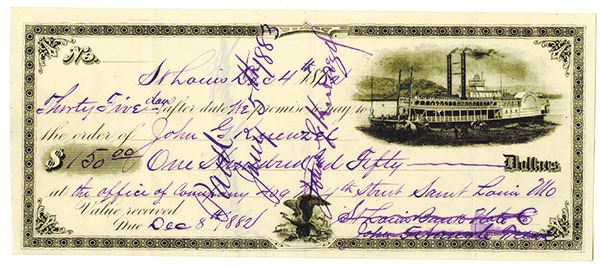 No.
St Louis Dec 4th 188
Thirty Five days after date we promise to pay to
the order of John G
$150.00 One Hundred Fifty Dollars
at the office of Company 409 4th Street Saint Louis Mo
Value received
Due Dec 8th 1882
St Louis Co
John
Paid
5th 1883